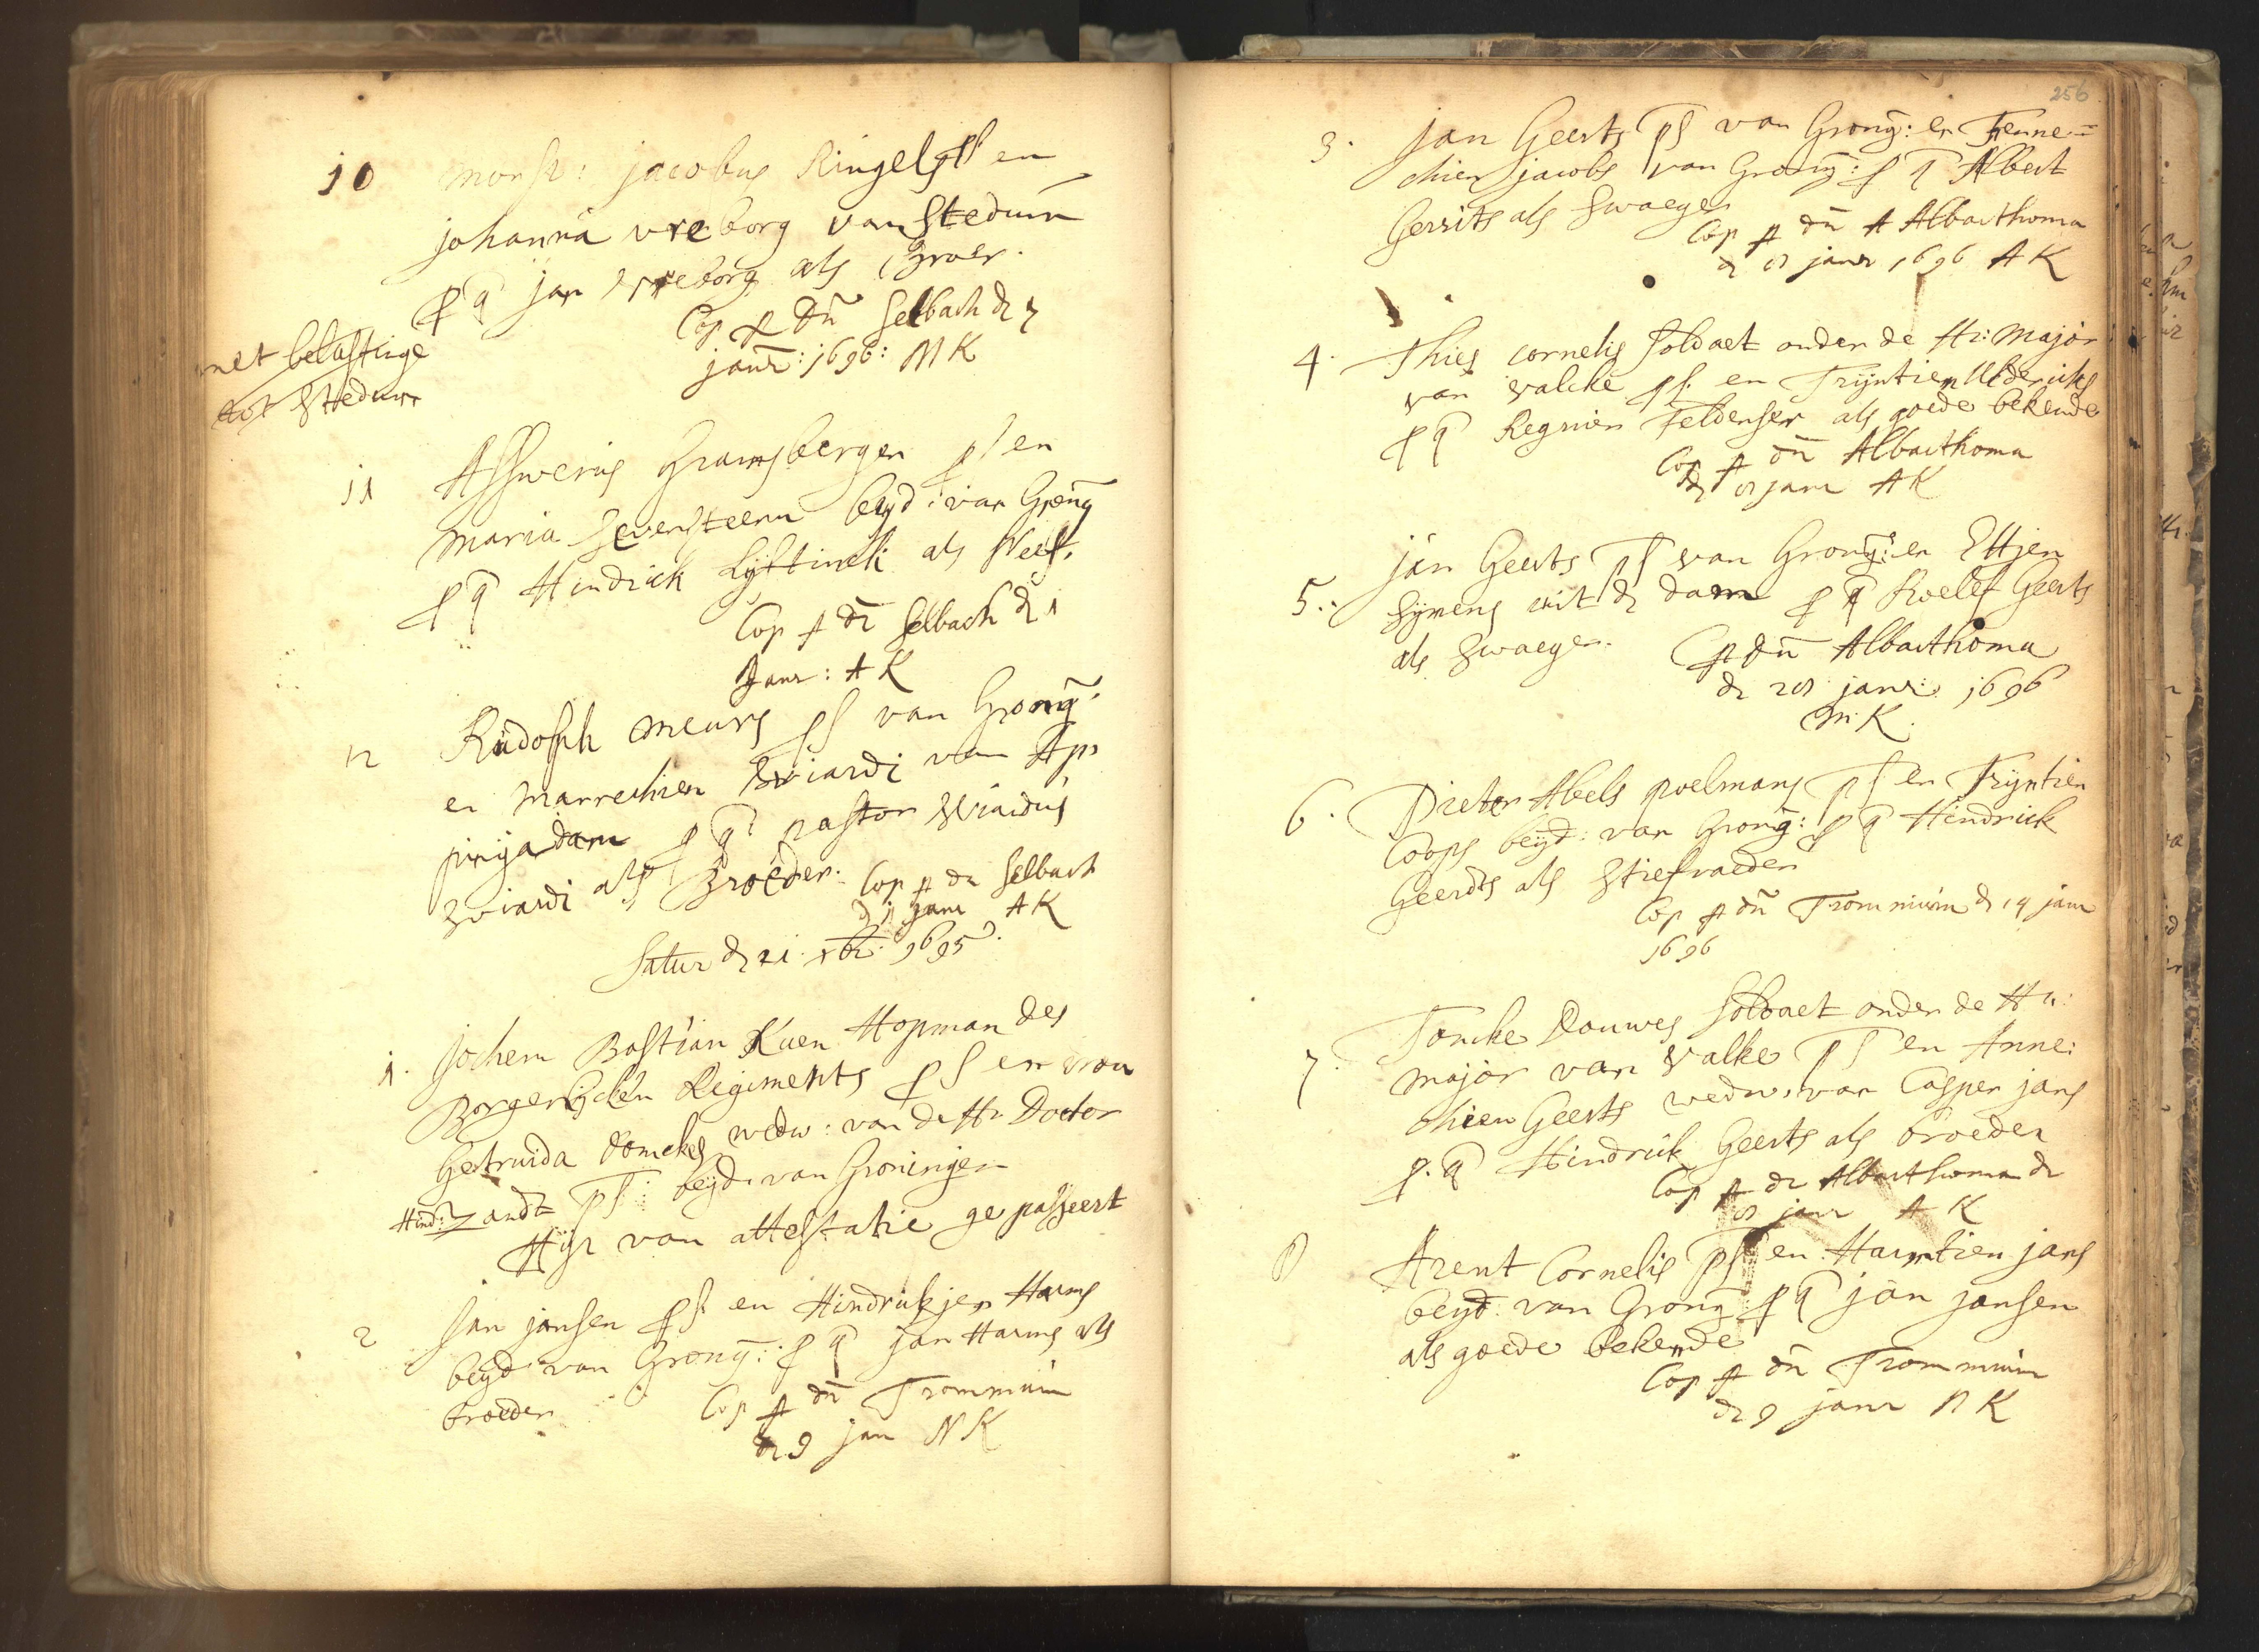 10 Monsr: Jacobus Ringels ps en
Johanna vreborg van Stedum
p q Jan Vreborg als Broer.
Cop p Dn Selbach d 7
janr: 1696: M K
met belastinge
tot Stedum
11 Assuerus Gramsbergen ps en
Maria Sevensteern beyd: van Grong
p q Hindrick Lyftinck als Neef.
Cop p dn Selbach d 1
Janr: A K
12 Rudolph Meurs ps van Grong:
en Marrechien Wiardi van Ap=
pingadam p q pastor Wiardus
Wiardi als Broeder. Cop p dn Selbach
janr A K
Satur d 21 xbr: 1695.
1. Jochem Bastian Kuen Hopman des
Borgerlycken Regiments ps en vrou
Gertruida Domckes wedw: van de Hr Doctor
Hind: Zandt ps: beyd: van Groningen
Hyr van attestatie gepasseert
2 Jan jansen ps: en Hindrickjen Harms
beyd van Grong: p q Jan Harms als
broeder Cop p dn Trommium
d 9 jan N K
256
3. Jan Geerts ps van Grong: en Fenne=
chien jacobs van Grong: p q Albert
Gerrits als Swaeger
Cop p dn A Alberthoma
d 8 janr 1696 A K
4. Thies cornelis soldaet onder de Hr: Major
van Valcke ps: en Trijntien Uldericks
p q Regnier Feldenser als goede bekende
Cop p dn Alberthoma
d 8 janr A K
5. jan Geerts ps van Grong: en Ettjen
Symens uit d dam p q Roelef Geerts
als Swaeger. Cop p dn Alberthoma
d 28 janr: 1696
M: K.
6. Pieter Abels poelmans ps en Trijntien
Coops beyd: van Grong: p q Hindrick
Geerdts als Stiefvaeder
Cop p dn Trommium d 14 janr
1696
7. Doncke Douwes soldaet onder de Hr:
major van Valke ps en Anne:
chien Geerts wedw: van Casper jans
p. q Hindrick Geerts als broeder
Cop p dn Alberthoma d
8 janr A K
8 Arent Cornelis ps en Harmtien jans
beyd: van Grong p q jan jansen
als goede bekende
Cop p dn Trommium
d 9 janr N K